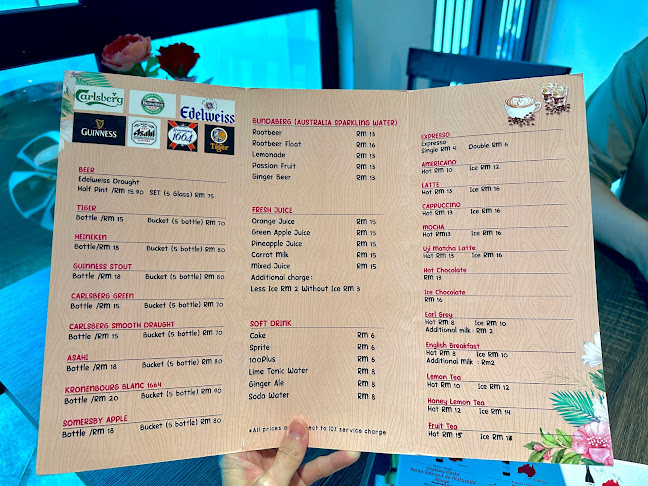 Carlsberg
Heineken
Edelweiss
GUINNESS
Asahi
1664
Tiger
BEER
Edelweiss Draught
Half Pint /RM 15.90 SET (5 Glass) RM 75
TIGER
Bottle /RM 15 Bucket (5 bottle) RM 70
HEINEKEN
Bottle/RM 18 Bucket (5 bottle) RM 80
GUINNESS STOUT
Bottle /RM 18 Bucket (5 bottle) RM 80
CARLSBERG GREEN
Bottle /RM 15 Bucket (5 bottle) RM 70
CARLSBERG SMOOTH DRAUGHT
Bottle /RM 15 Bucket (5 bottle) RM 70
ASAHI
Bottle /RM 18 Bucket (5 bottle) RM 80
KRONENBOURG BLANC 1664
Bottle /RM 20 Bucket (5 bottle) RM 90
SOMERSBY APPLE
Bottle /RM 18 Bucket (5 bottle) RM 80
BUNDABERG (AUSTRALIA SPARKLING WATER)
Rootbeer RM 13
Rootbeer Float RM 16
Lemonade RM 13
Passion Fruit RM 13
Ginger Beer RM 13
FRESH JUICE
Orange Juice RM 15
Green Apple Juice RM 15
Pineapple Juice RM 15
Carrot Milk RM 15
Mixed Juice RM 15
Additional charge:
Less Ice RM 2 Without Ice RM 3
SOFT DRINK
Coke RM 6
Sprite RM 6
100Plus RM 6
Lime Tonic Water RM 8
Ginger Ale RM 8
Soda Water RM 8
*All prices are subject to 10% service charge
EXPRESSO
Expresso
Single RM 4 Double RM 6
AMERICANO
Hot RM 10 Ice RM 12
LATTE
Hot RM 13 Ice RM 16
CAPPUCCINO
Hot RM 13 Ice RM 16
MOCHA
Hot RM13 Ice RM 16
Uji Matcha Latte
Hot RM 13 Ice RM 16
Hot Chocolate
RM13
Ice Chocolate
RM 16
Earl Grey
Hot RM 8 Ice RM 10
Additional milk : RM 2
English Breakfast
Hot RM 8 Ice RM 10
Additional milk : RM2
Lemon Tea
Hot RM 10 Ice RM 12
Honey Lemon Tea
Hot RM 12 Ice RM 14
Fruit Tea
Hot RM 15 Ice RM